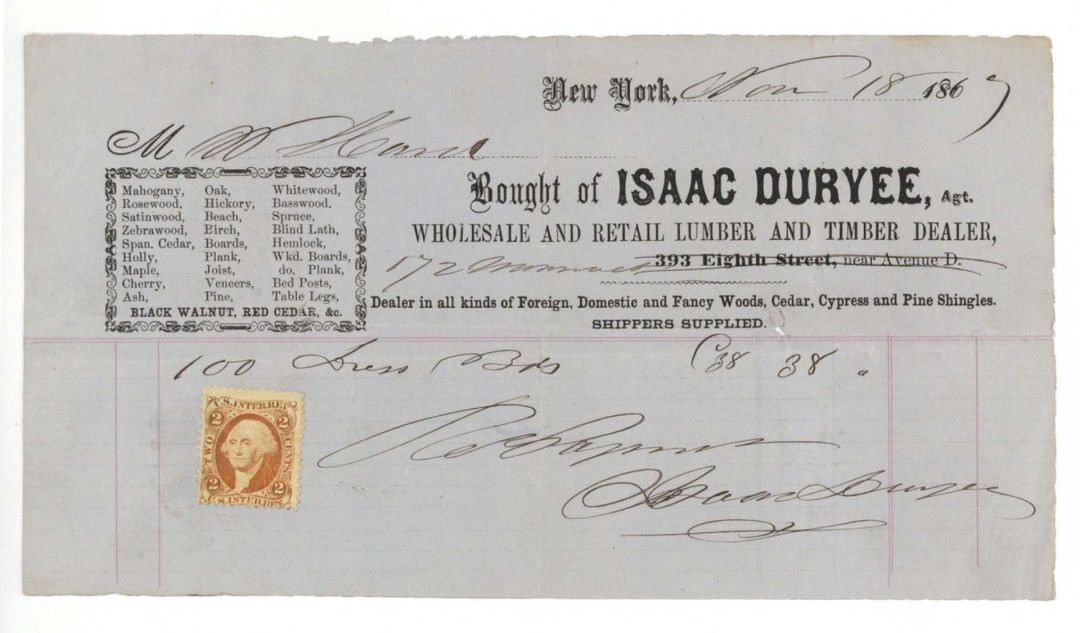 New York, Nov 18 1867
M W Hard
Mahogany, Oak, Whitewood,
Rosewood. Hickory, Basswood.
Satinwood, Beach, Spruce,
Zebrawood, Birch, Blind Lath,
Span. Cedar, Boards, Hemlock,
Holly, Plank, Wkd. Boards,
Maple, Joist, do. Plank,
Cherry, Veneers, Bed Posts,
Ash, Pine, Table Legs,
BLACK WALNUT, RED CEDAR, &c.
Bought of ISAAC DURYEE, Agt.
WHOLESALE AND RETAIL LUMBER AND TIMBER DEALER,
172 393 Eighth Street, near Avenue D.
Dealer in all kinds of Foreign, Domestic and Fancy Woods, Cedar, Cypress and Pine Shingles.
SHIPPERS SUPPLIED.
100 Bds C38 38 "
U.S. INTER. REV.
2 2
TWO CENTS
2 2
U.S. INTER. REV.
Rec Payment
Isaac Duryee